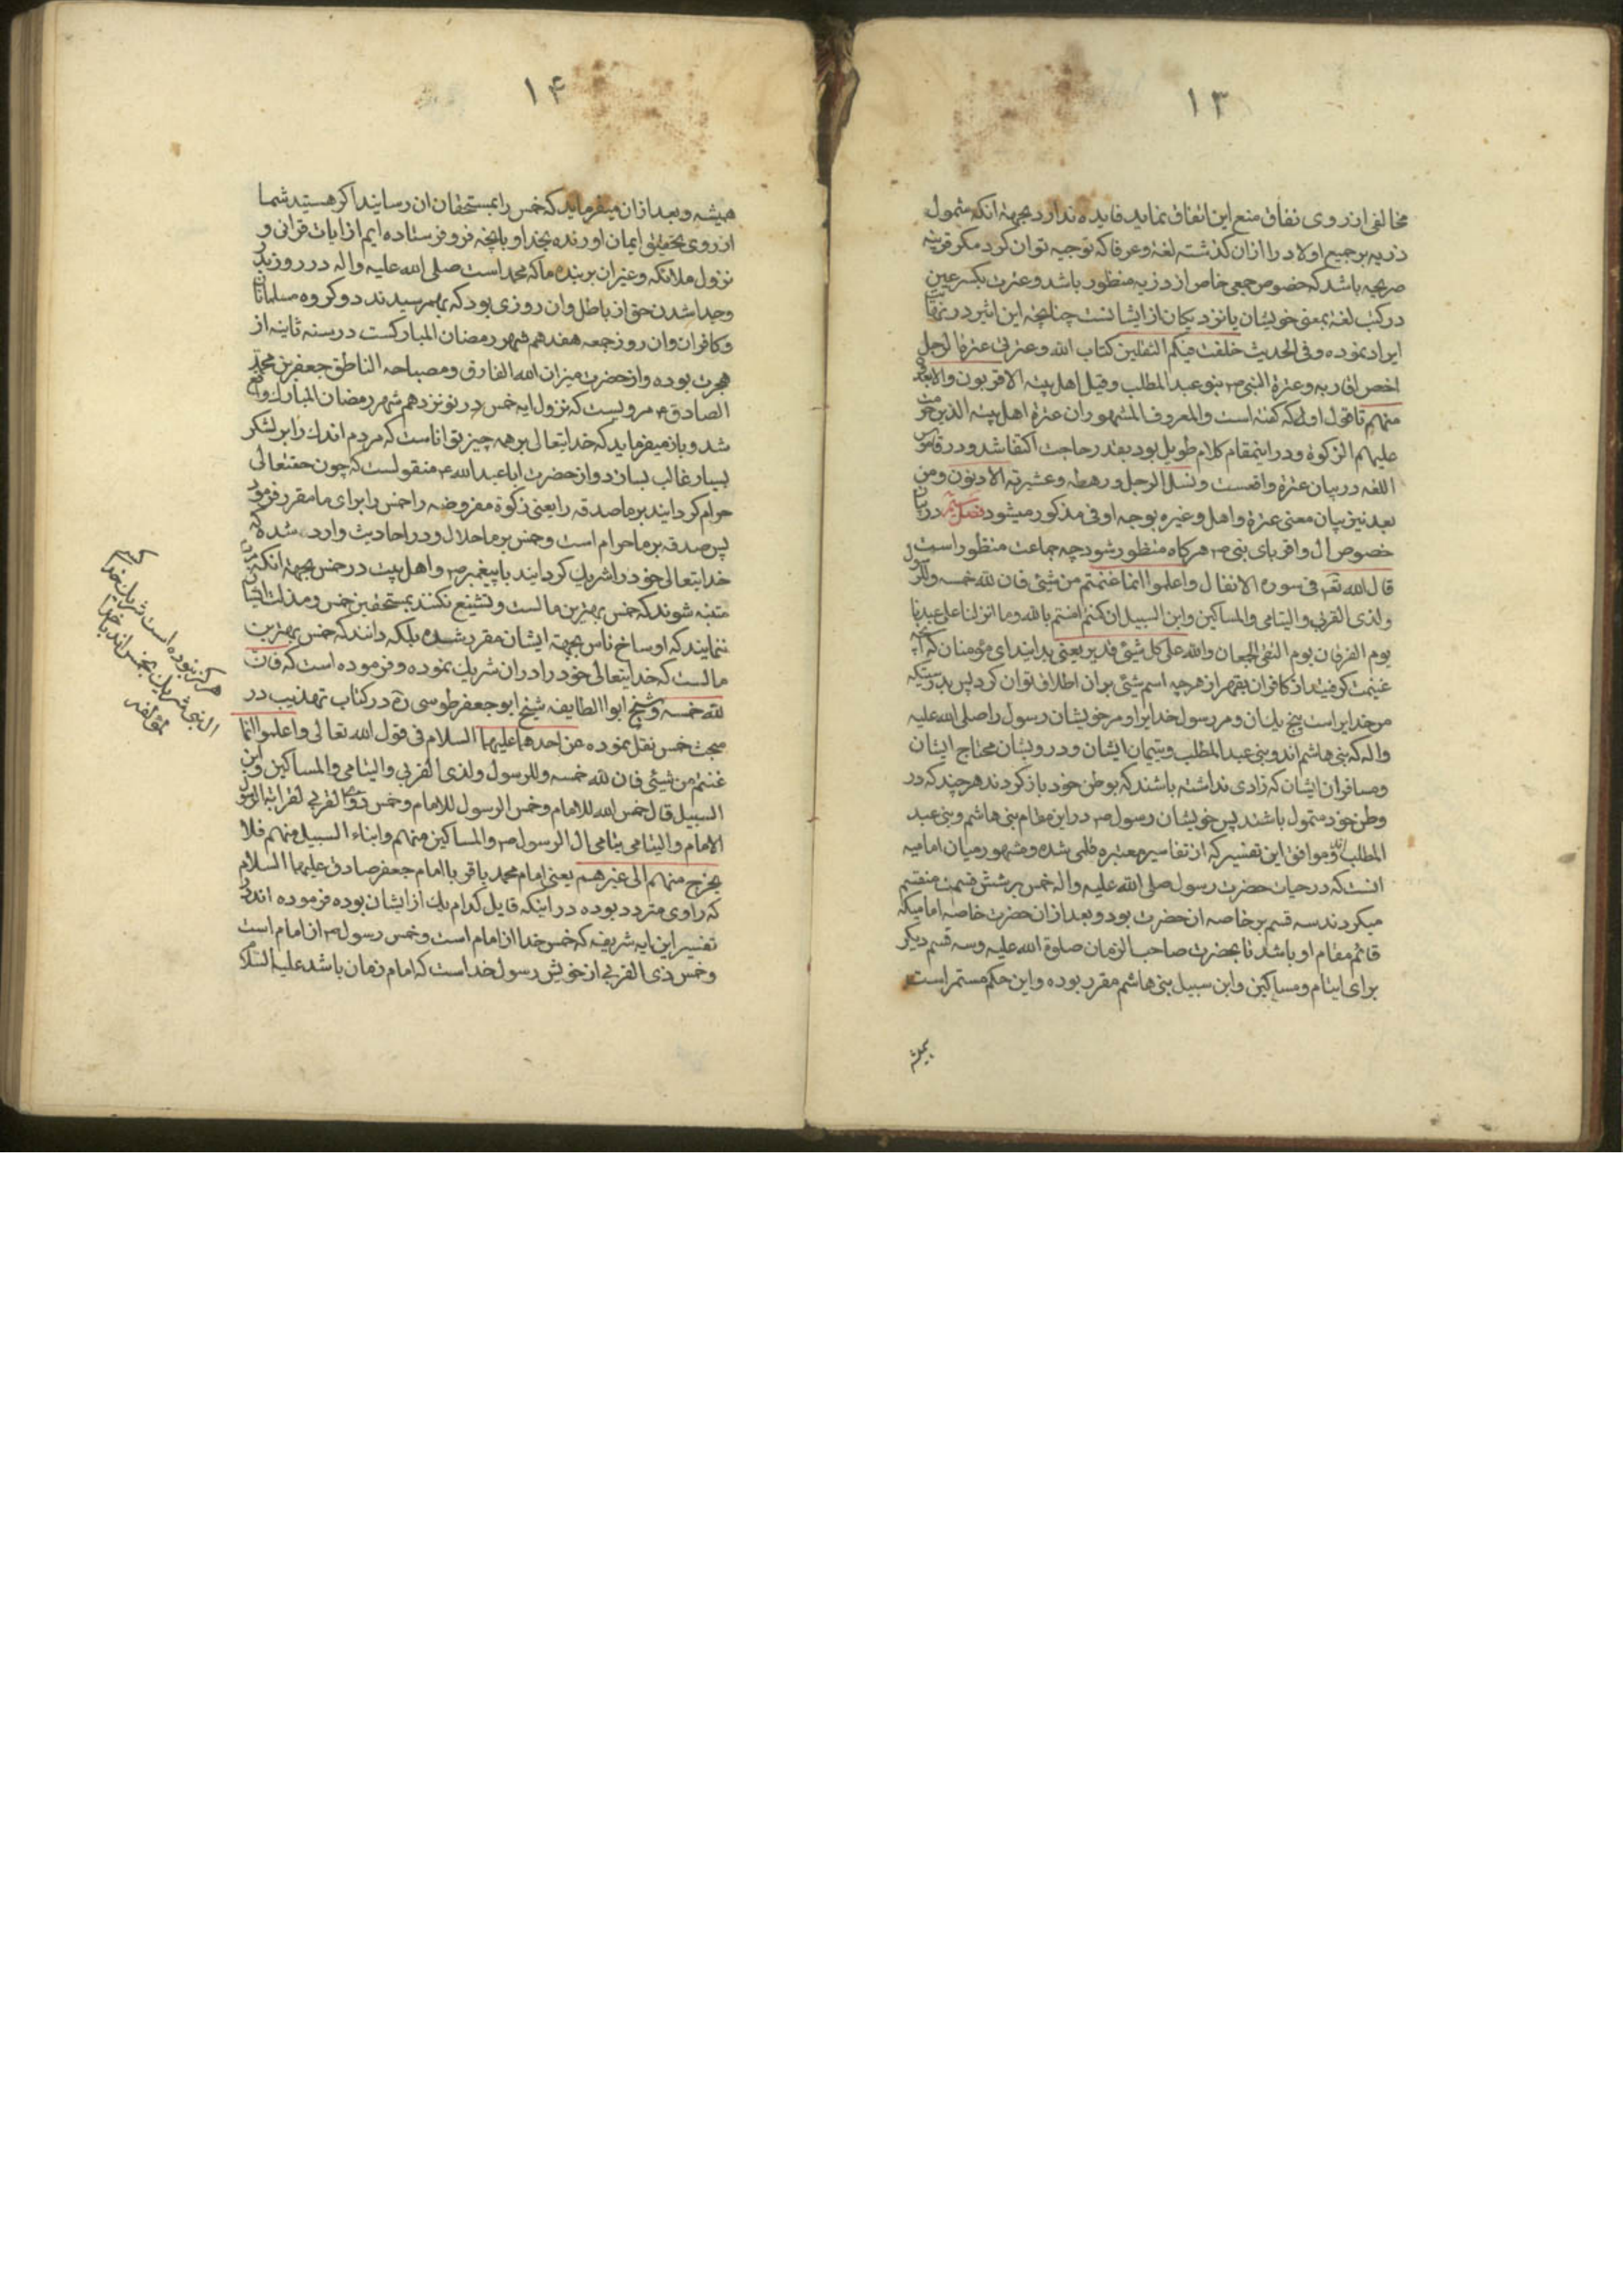 ۱۳
مخالفی از روی نفاق منع این اتفاق نماید فایده ندارد بجهة انکه شمول
ذریه بر جمیع اولاد را از ان کذشته لغة و عرفا که توجیه توان کرد مکر قرینه
صریحه باشد که خصوص جمعی خاص از ذریه منظور باشد و عترت بکسر عین
در کتب لغة بمعنی خویشان یا نزدیکان از ایشانست چنانچه ابن اثیر در نهایت
ایراد نموده و فی الحدیث خلفت فیکم الثقلین کتاب الله و عترتی عترة الرجل
اخص اقاربه و عترة النبی ص بنو عبد المطلب و قیل اهل بیته الاقربون والابعدون
منهم تا قول او که کفته است والمعروف المشهور ان عترة اهل بیته الذین حرمت
علیهم الزکوة و در اینمقام کلام طویل بود بقدر حاجت اکتفا شد و در قاموس
اللغه در بیان عترة واقعست و نسل الرجل و رهطه و عشیرته الادنون و من
بعد نیز بیان معنی عترة و اهل و غیره بوجه اوفی مذکور میشود فصل در بیان
خصوص ال و اقربای نبی ص هرکاه منظور شود چه جماعت منظور است
قال الله تعم فی سورة الانفال واعلموا انما غنمتم من شیئ فان لله خمسه وللرسول
ولذی القربی والیتامی والمساکین وابن السبیل ان کنتم امنتم بالله وما انزلنا علی عبدنا
یوم الفرقان یوم التقی الجمعان والله علی کل شیئ قدیر یعنی بدانید ای مؤمنان که آنچه
غنیمت کرفتید از کافران بقهر از هر چه اسم شیئ بر ان اطلاق توان کرد پس بدرستیکه
مر خدایراست پنج یک ان و مر رسول خدایرا و مر خویشان رسول را صلی الله علیه
واله که بنی هاشم اند و بنی عبد المطلب و یتیمان ایشان و درویشان محتاج ایشان
و مسافران ایشان که زادی نداشته باشند که بوطن خود باز کردند هر چند که در
وطن خود متمول باشند پس خویشان رسول ص در این مقام بنی هاشم و بنی عبد
المطلب اند و موافق این تفسیر که از تفاسیر معتبره قلمی شده و مشهور میان امامیه
انست که در حیات حضرت رسول صلی الله علیه واله خمس بر شش قسمت منقسم
میکردند سه قسم بر خاصه ان حضرت بود و بعد از ان حضرت خاصه امامیکه
قائم مقام او باشد تا بحضرت صاحب الزمان صلوة الله علیه و سه قسم دیکر
برای ایتام و مساکین و ابن سبیل بنی هاشم مقرر بوده و این حکم مستمر است
همیشه
۱۴
همیشه و بعد از ان میفرماید که خمس را بمستحقان ان رسانید اکر هستید شما
از روی تحقیق ایمان اورنده بخدا و بانچه فرو فرستاده ایم از ایات قرانی و
نزول ملائکه و غیر ان بر بنده ما که محمد است صلی الله علیه واله در روز بدر
و جدا شدن حق از باطل و ان روزی بود که بهم رسیدند دو کروه مسلمانان
و کافران و ان روز جمعه هفدهم شهر رمضان المبارکست در سنه ثانیه از
هجرت بوده و از حضرت میزان الله الفارق و مصباحه الناطق جعفر بن محمد
الصادق ع مرویست که نزول ایه خمس در نوزدهم شهر رمضان المبارک واقع
شد و باز میفرماید که خدایتعالی بر همه چیز تواناست که مردم اندک را بر لشکر
بسیار غالب بسازد و از حضرت ابا عبد الله ع منقولست که چون حقتعالی
حرام کردانید بر ما صدقه را یعنی زکوة مفروضه را خمس را برای ما مقرر فرمود
پس صدقه بر ما حرام است و خمس بر ما حلال و در احادیث وارد شده که
خدایتعالی خود را شریک کردانید با پیغمبر ص و اهل بیت در خمس بجهة انکه مردم
متنبه شوند که خمس بهترین مالست و تشنیع نکنند بمستحقین خمس و مذلت ایشان
ننمایند که اوساخ ناس بجهة ایشان مقرر شده بلکه دانند که خمس بهترین
مالست که خدایتعالی خود را در ان شریک نموده و فرموده است که فان
لله خمسه و شیخ ابوا الطایفه شیخ ابو جعفر طوسی ره در کتاب تهذیب در
مبحث خمس نقل نموده عن احدهما علیهما السلام فی قول الله تعالی واعلموا انما
غنمتم من شیئی فان لله خمسه وللرسول ولذی القربی والیتامی والمساکین وابن
السبیل قال خمس الله للامام وخمس الرسول للامام وخمس ذوی القربی لقرابة الرسول
الامام والیتامی یتامی ال الرسول ص والمساکین منهم وابناء السبیل منهم فلا
یخرج منهم الی غیرهم یعنی امام محمد باقر یا امام جعفر صادق علیهما السلام
که راوی متردد بوده در اینکه قایل کدام یک از ایشان بوده فرموده اند در
تفسیر این ایه شریفه که خمس خدا از امام است و خمس رسول ص از امام است
و خمس ذی القربی از خویش رسول خداست که امام زمان باشد علیه السلام
هرکز نبوده است شریک خدا
ال نبی شریک بخمس اند با خدا
لمؤلفه